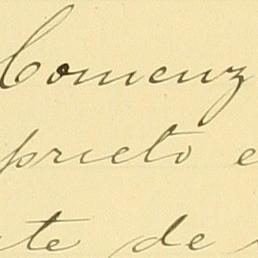 Comenz
prieto e
te de